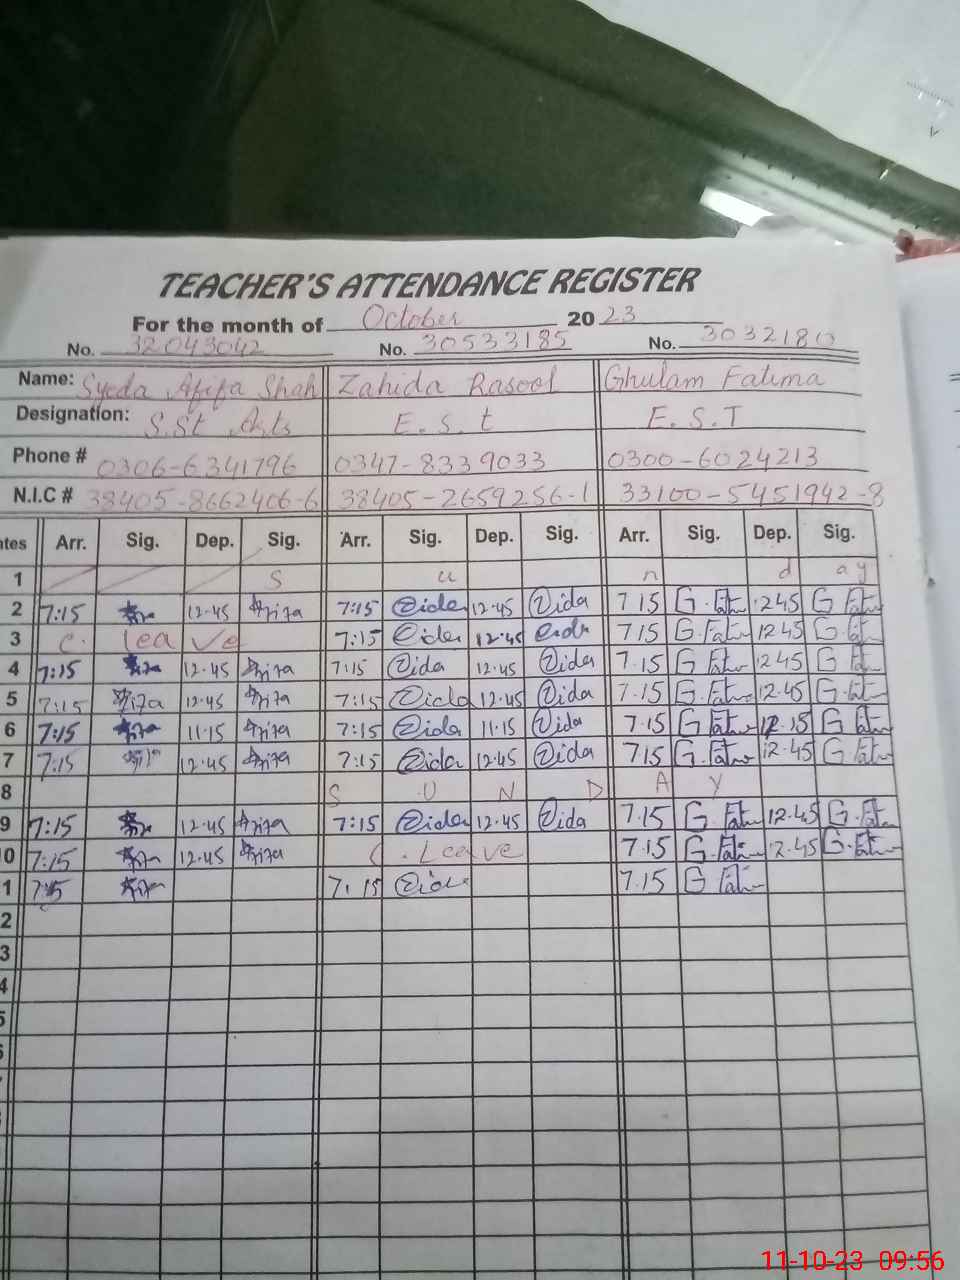 TEACHER'S ATTENDANCE REGISTER
For the month of October 2023
No. 32043042 No. 30533185 No. 3032180
Name: Syeda Afifa Shah Zahida Rasool Ghulam Fatima
Designation: S.St Arts E.S.t E.S.T
Phone # 0306-6341796 0347-8339033 0300-6024213
N.I.C # 38405-8662406-6 38405-2659256-1 33100-5451942-8
ates Arr. Sig. Dep. Sig. Arr. Sig. Dep. Sig. Arr. Sig. Dep. Sig.
1 S u n d ay
2 7:15 12.45 7:15 Zida 12.45 Zida 7 15 G.Fatim 1245 G Fatim
3 C. leave 7:15 Zida 12.45 Zida 7 15 G.Fatim 1245 G Fatim
4 7:15 12.45 7:15 Zida 12.45 Zida 7.15 G Fatim 1245 G Fatim
5 7:15 12.45 7:15 Zida 12.45 Zida 7.15 G.Fatim 12.45 G.Fatim
6 7:15 11.15 7:15 Zida 11.15 Zida 7.15 G Fatim 12.15 G Fatim
7 7:15 12.45 7:15 Zida 12.45 Zida 7.15 G.Fatim 12.45 G.Fatim
8 S U N D A Y
9 7:15 12.45 7:15 Zida 12.45 Zida 7.15 G Fatim 12.45 G.Fatim
0 7:15 12.45 C. Leave 7.15 G.Fatim 12.45 G.Fatim
1 7:15 7:15 Zida 7.15 G Fatim
2
3
4
5
6
11-10-23 09:56